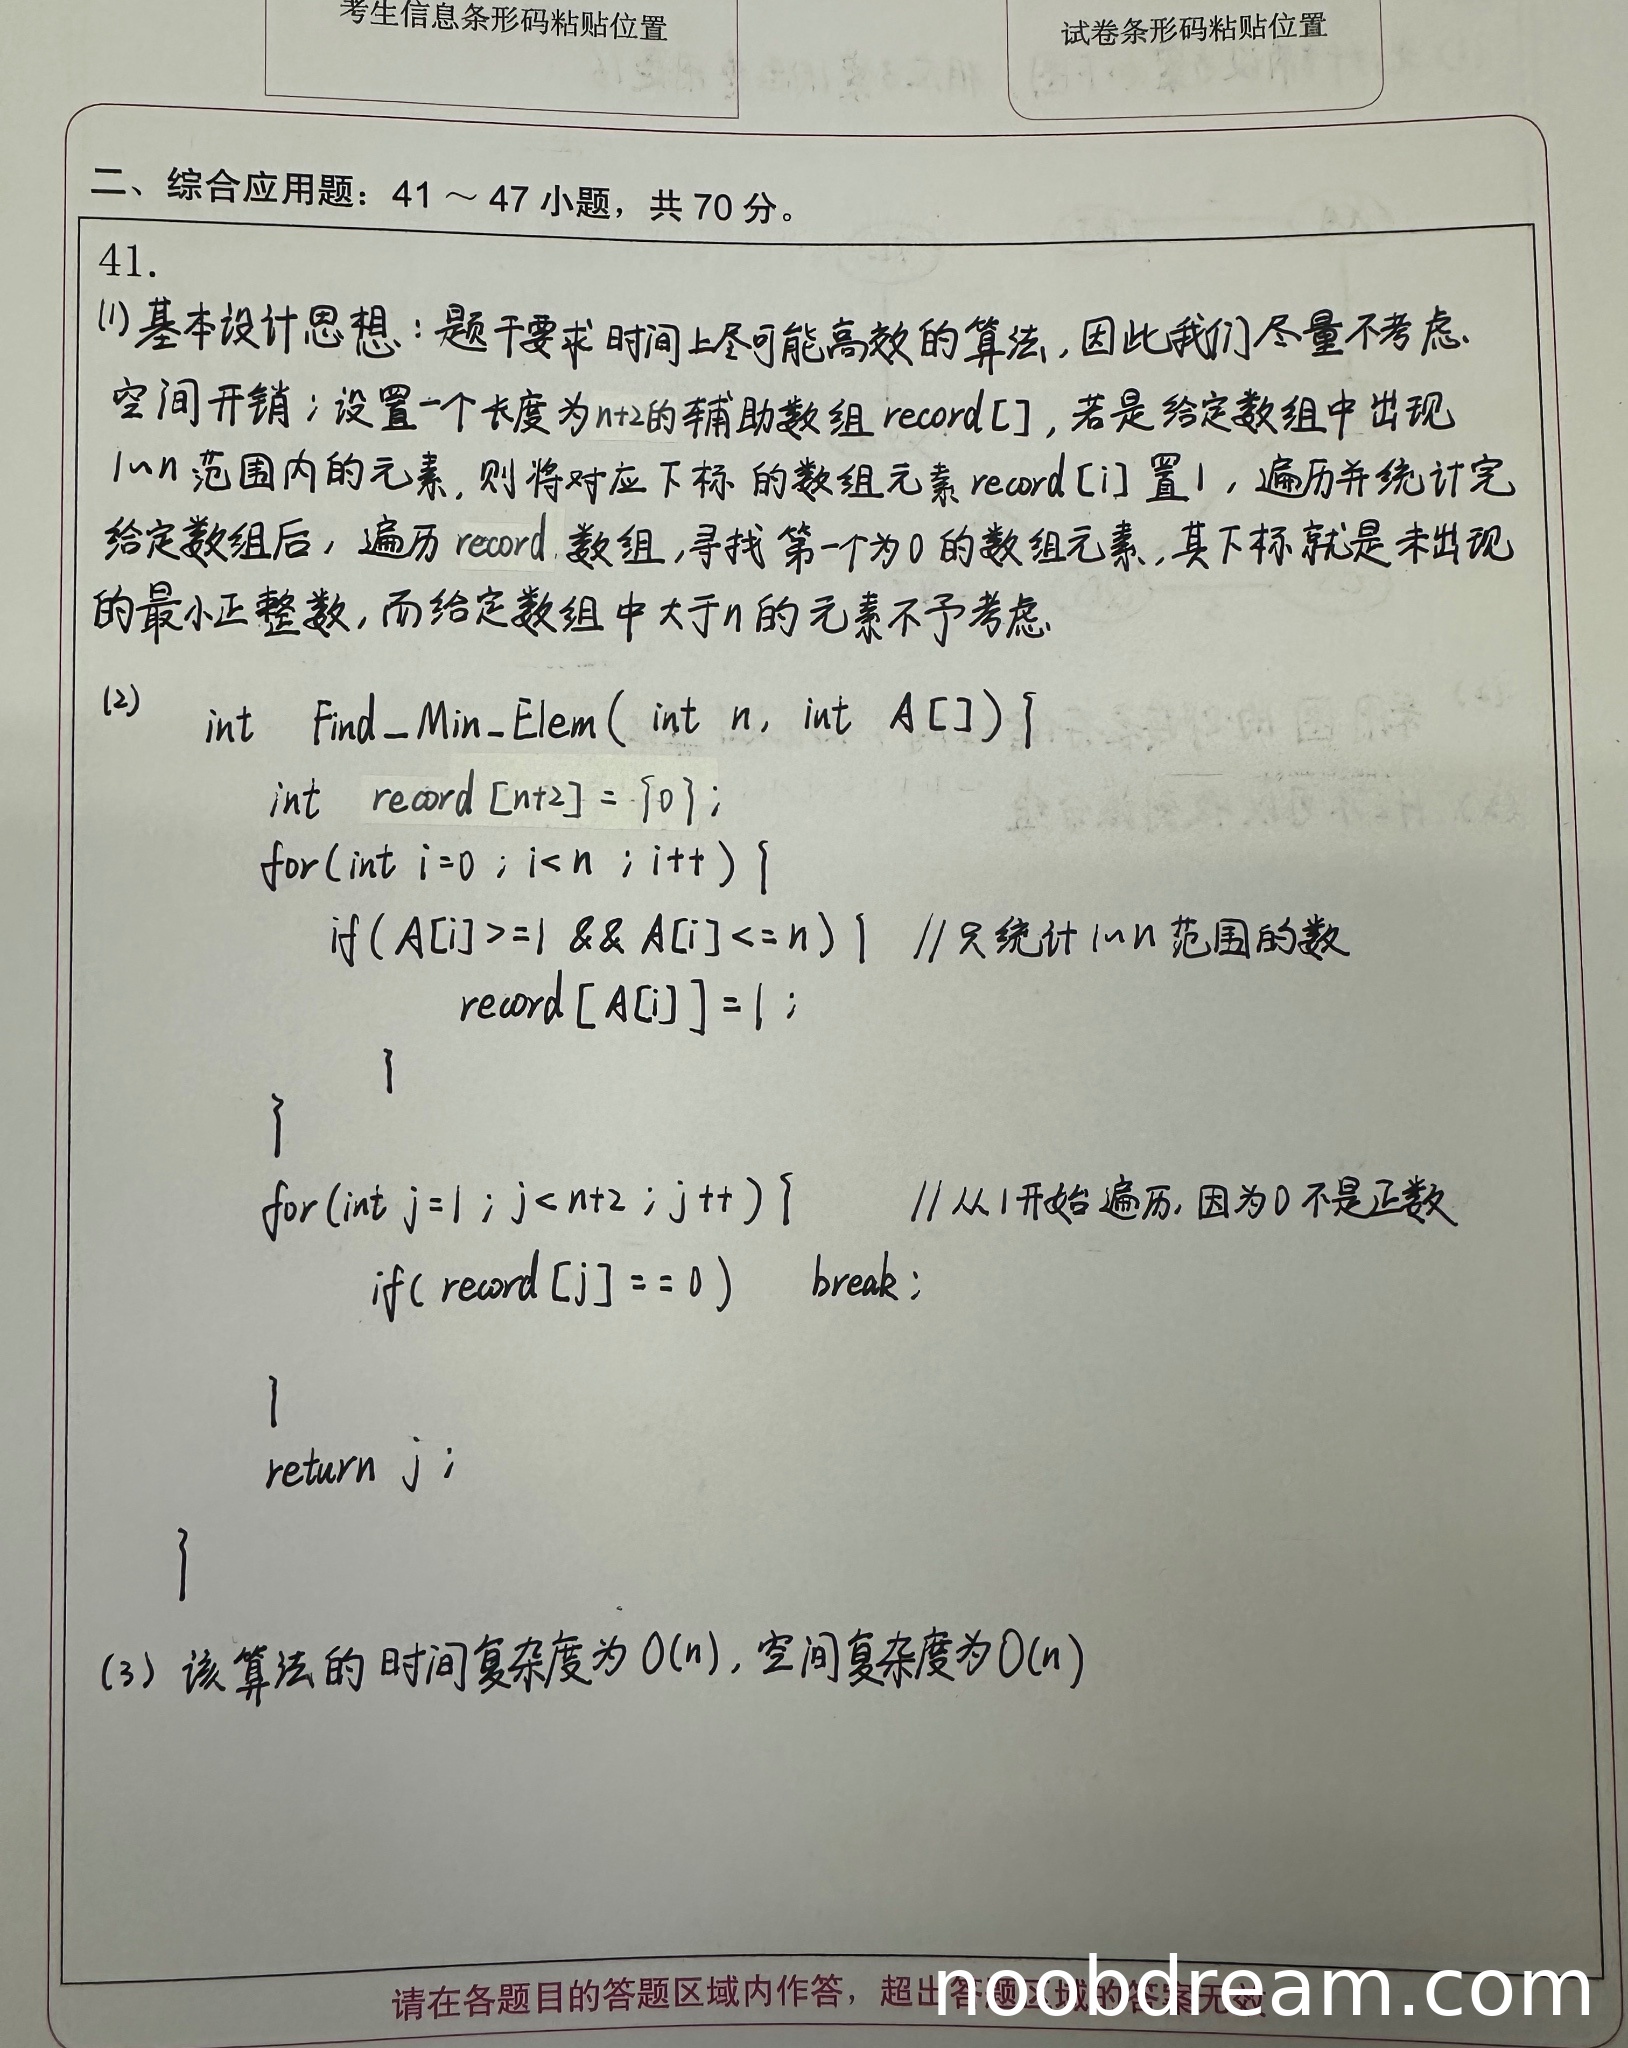 考生信息条形码粘贴位置
试卷条形码粘贴位置
二、综合应用题：41～47 小题，共 70 分。
41.
(1) 基本设计思想：题干要求时间上尽可能高效的算法，因此我们尽量不考虑
空间开销；设置一个长度为n+2的辅助数组 record[]，若是给定数组中出现
1~n 范围内的元素，则将对应下标的数组元素record[i]置1，遍历并统计完
给定数组后，遍历record 数组，寻找第一个为0的数组元素，其下标就是未出现
的最小正整数，而给定数组中大于n的元素不予考虑.
(2) int Find_Min_Elem( int n, int A[]){
int record[n+2] = {0};
for(int i=0 ; i<n ; i++) {
if(A[i]>=1 && A[i]<=n) { //只统计1~n范围的数
record[A[i]]=1;
}
}
for(int j=1 ; j<n+2 ; j++) { //从1开始遍历，因为0不是正数
if( record[j]==0) break;
}
return j;
}
(3) 该算法的时间复杂度为O(n)，空间复杂度为O(n)
请在各题目的答题区域内作答，超出答题区域的答案无效
noobdream.com